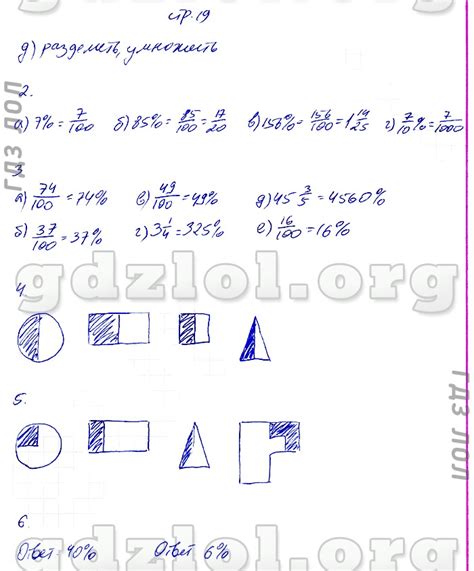 стр. 19
д) разделить, умножить
2.
а) 7% = 7/100 б) 85% = 85/100 = 17/20 в) 156% = 156/100 = 1 14/25 г) 7/10% = 7/1000
3
а) 74/100 = 74% в) 49/100 = 49% д) 45 3/5 = 4560%
б) 37/100 = 37% г) 3 1/4 = 325% е) 16/100 = 16%
4
gdzlol.org
5.
6.
gdzlol.org
Ответ = 40% Ответ 6%
ГДЗ ЛОЛ
ГДЗ ЛОЛ